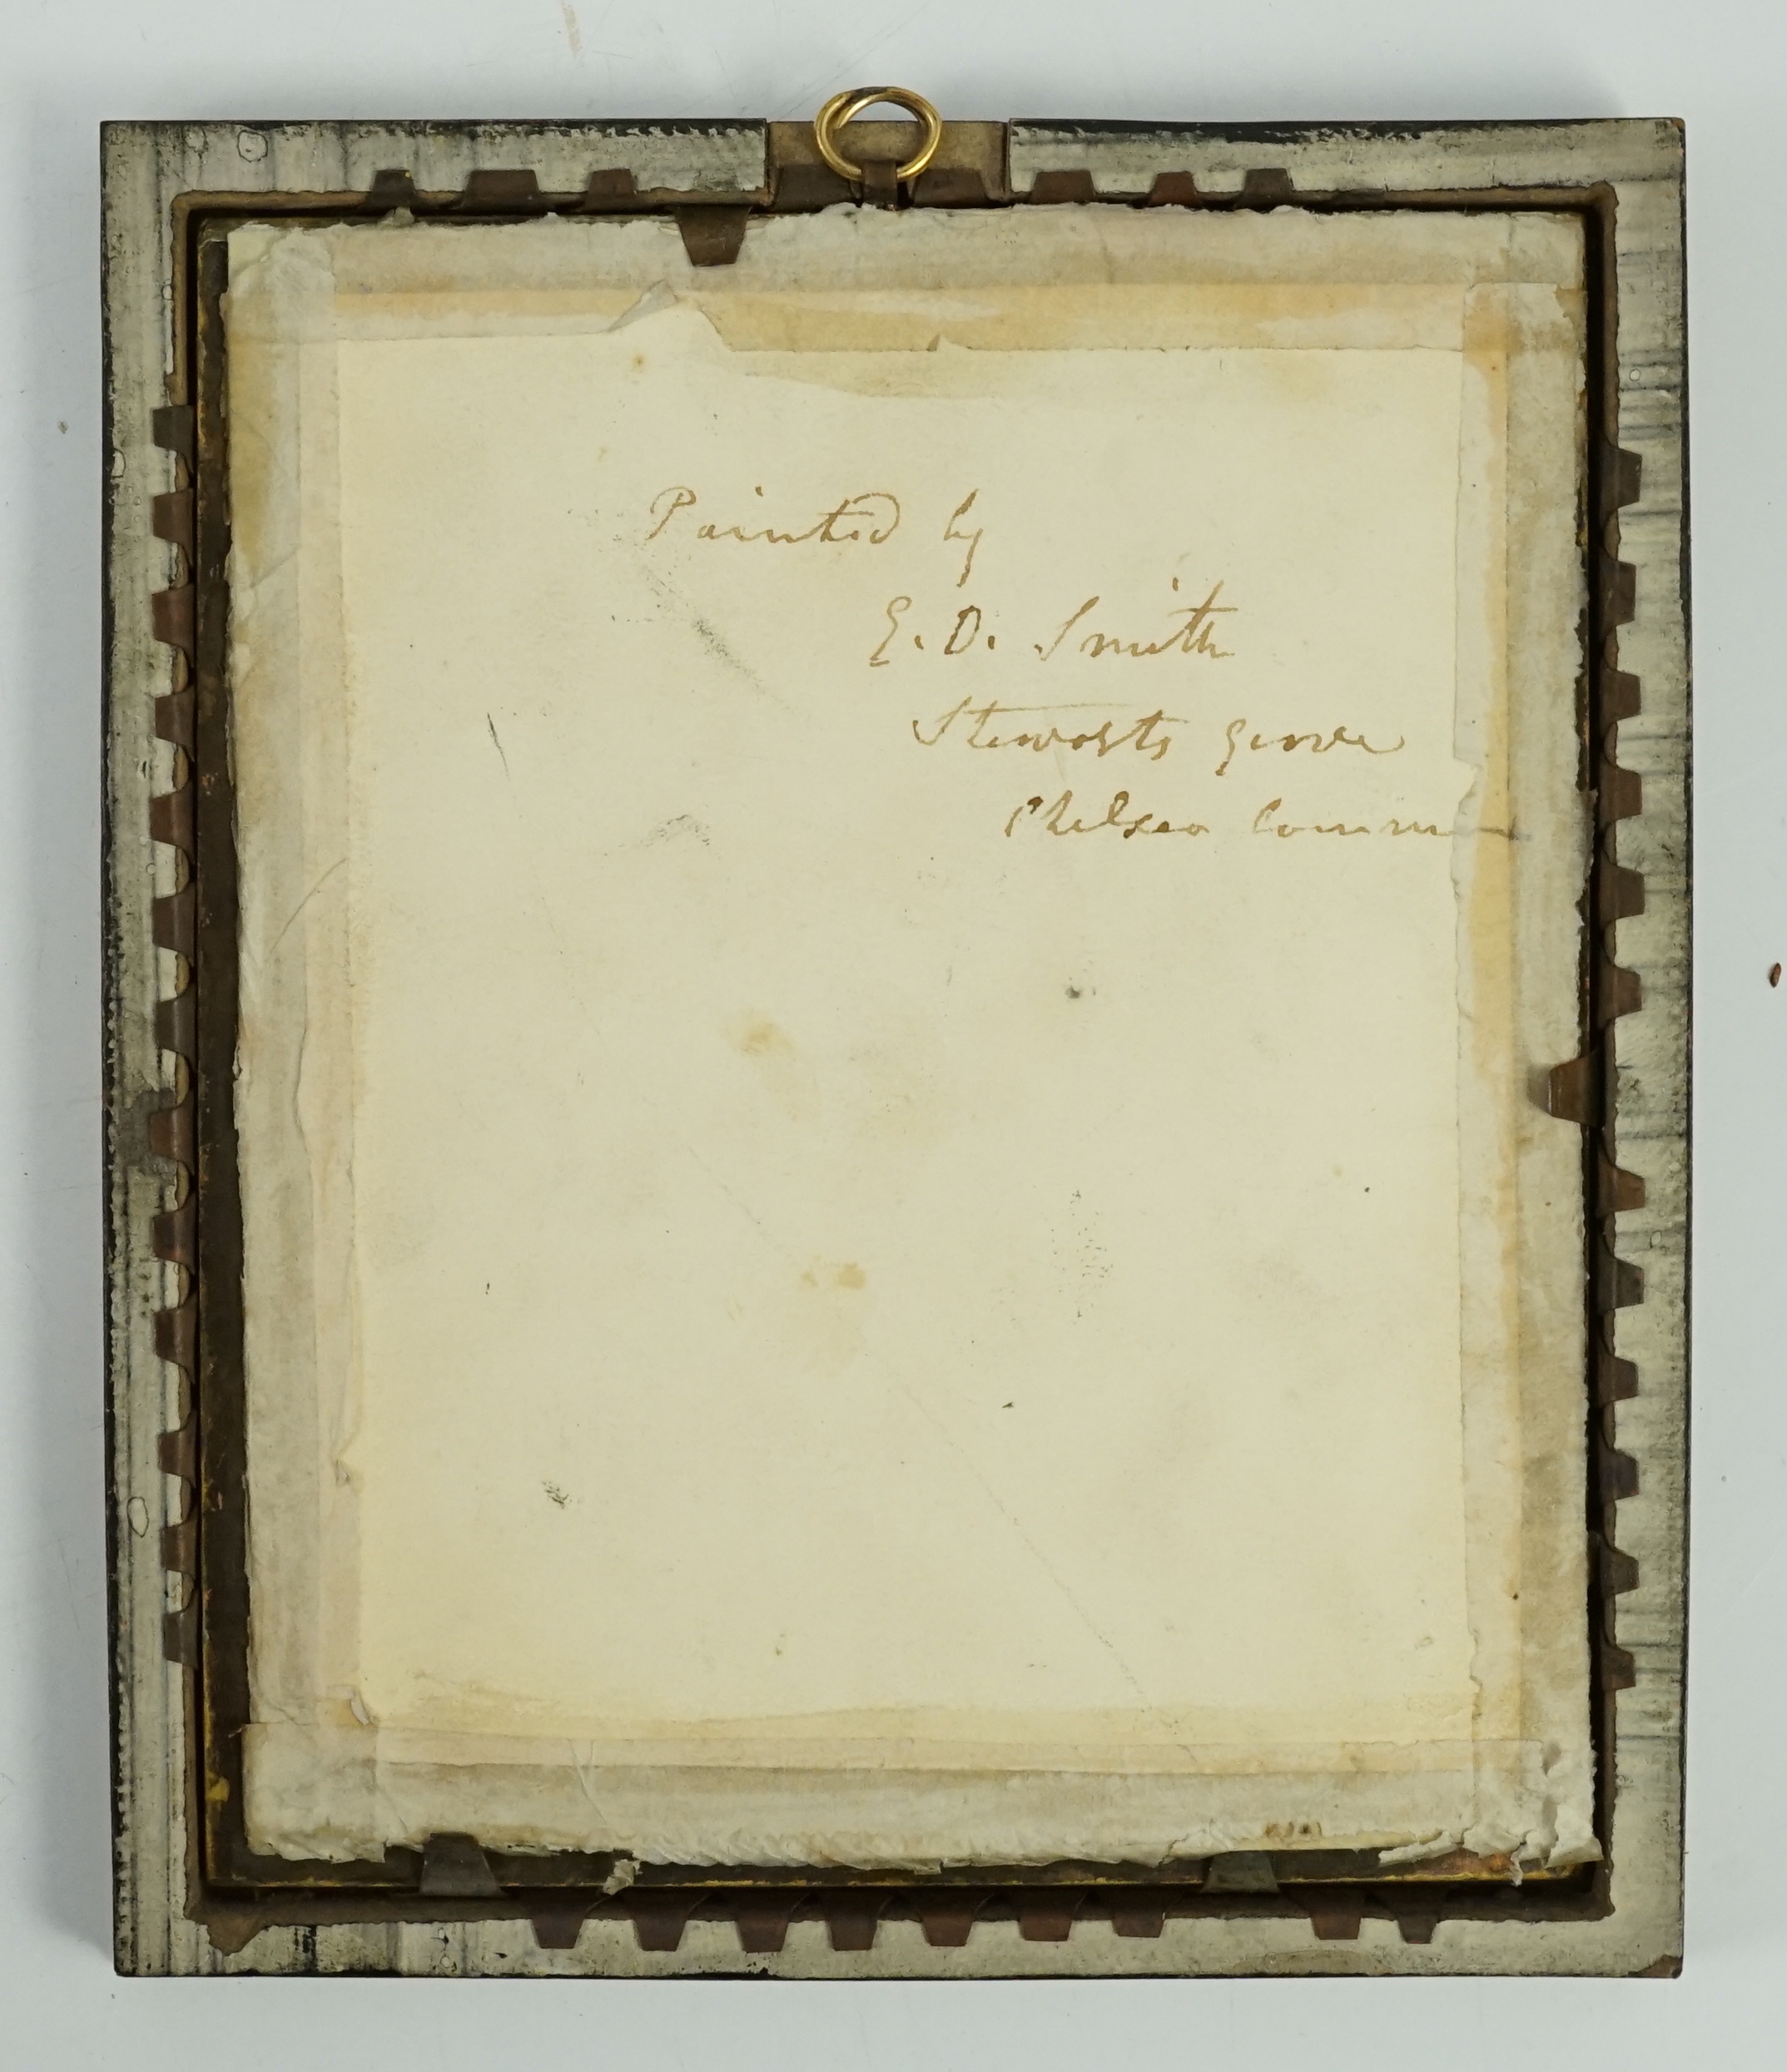 Painted by
E. D. Smith
Stewarts Grove
Chelsea Common